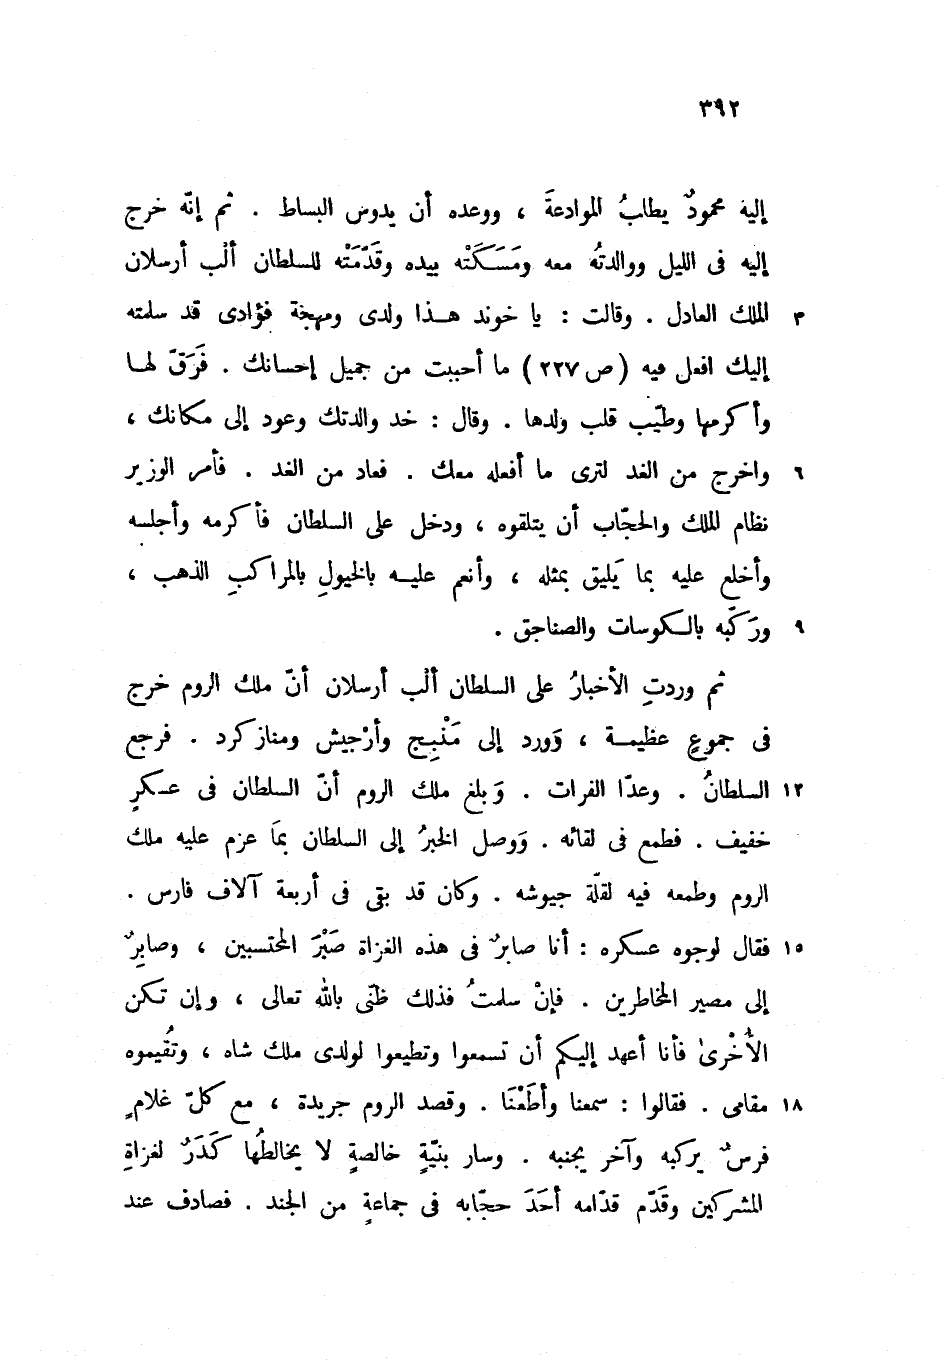 ٣٩٢
إليه محمودٌ يطلبُ الموادعةَ ، ووعده أن يدوس البساط . ثم إنّه خرج
إليه فى الليل ووالدتُه معه ومَسَكَتْه بيده وقَدّمَتْه للسلطان ألْب أرسلان
٣ الملك العادل . وقالت : يا خوند هذا ولدى ومهجة فؤادى قد سلمته
إليك افعل فيه (ص ٢٢٧) ما أحببت من جميل إحسانك . فَرَقّ لها
وأكرمها وطيّب قلب ولدها . وقال : خد والدتك وعود إلى مكانك ،
٦ واخرج من الغد لترى ما أفعله معك . فعاد من الغد . فأمر الوزير
نظام الملك والحجّاب أن يتلقوه ، ودخل على السلطان فأكرمه وأجلسه
وأخلع عليه بما يَليق بمثله ، وأنعم عليه بالخيولِ بالمراكبِ الذهب ،
٩ ورَكّبه بالكوسات والصناجق .
ثم وردتِ الأخبارُ على السلطان ألْب أرسلان أنّ ملك الروم خرج
فى جموعٍ عظيمة ، وَورد إلى مَنْبِج وأرْجيش ومنازكرد . فرجع
١٢ السلطانُ . وعدّا الفرات . وَبلغ ملك الروم أنّ السلطان فى عسكرٍ
خفيف . فطمع فى لقائه . وَوصل الخبرُ إلى السلطان بمَا عزم عليه ملك
الروم وطمعه فيه لقلّة جيوشه . وكان قد بقى فى أربعة آلاف فارس .
١٥ فقال لوجوه عسكره : أنا صابرٌ فى هذه الغزاة صَبْرَ المحتسبين ، وصابِرٌ
إلى مصير المخاطرين . فإنْ سلمتُ فذلك ظنّى بالله تعالى ، وإن تكن
الأُخْرىٰ فأنا أعهد إليكم أن تسمعوا وتطيعوا لولدى ملك شاه ، وتُقيموه
١٨ مقامى . فقالوا : سمعنا وأطَعْنَا . وقصد الروم جريدة ، مع كلّ غلامٍ
فرسٌ يركبه وآخر يجنبه . وسار بنيّةٍ خالصةٍ لا يخالطُها كَدَرٌ لغزاةِ
المشركين وقَدّم قدّامه أحَدَ حجّابه فى جماعةٍ من الجند . فصادف عند